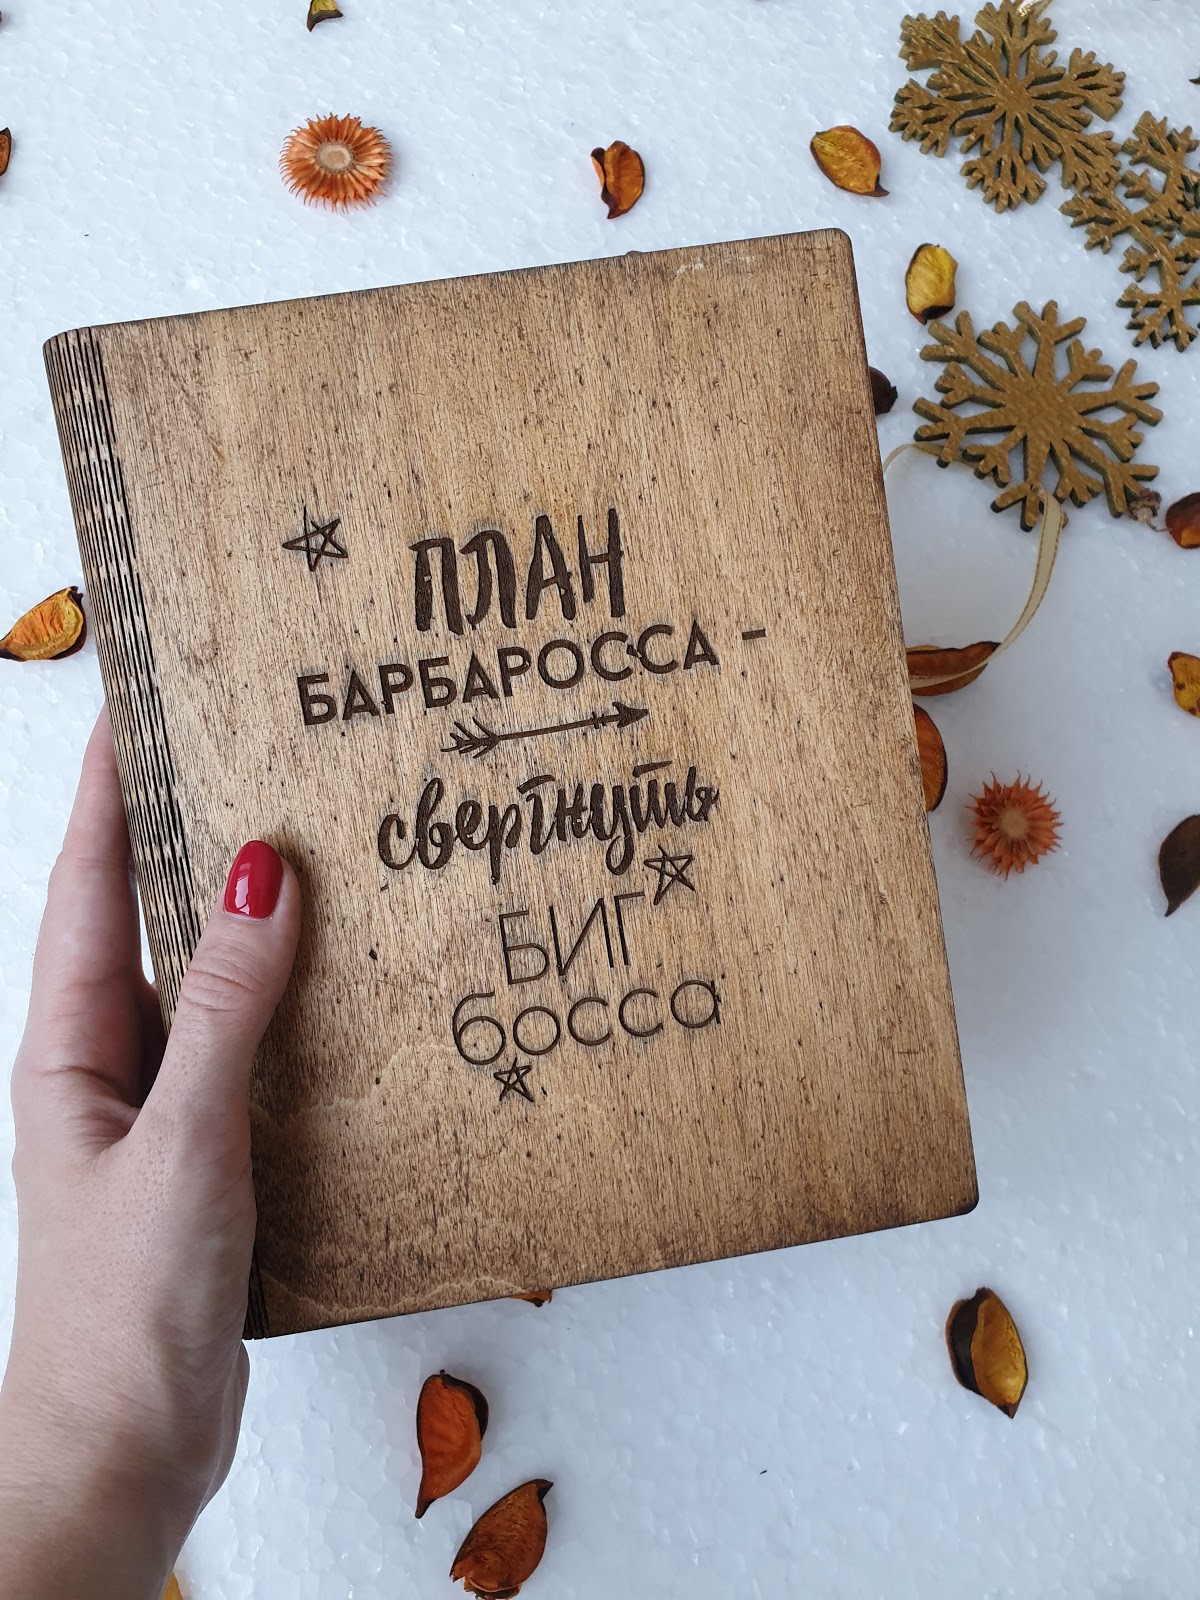 ПЛАН
БАРБАРОССА -
свергнуть
БИГ
босса